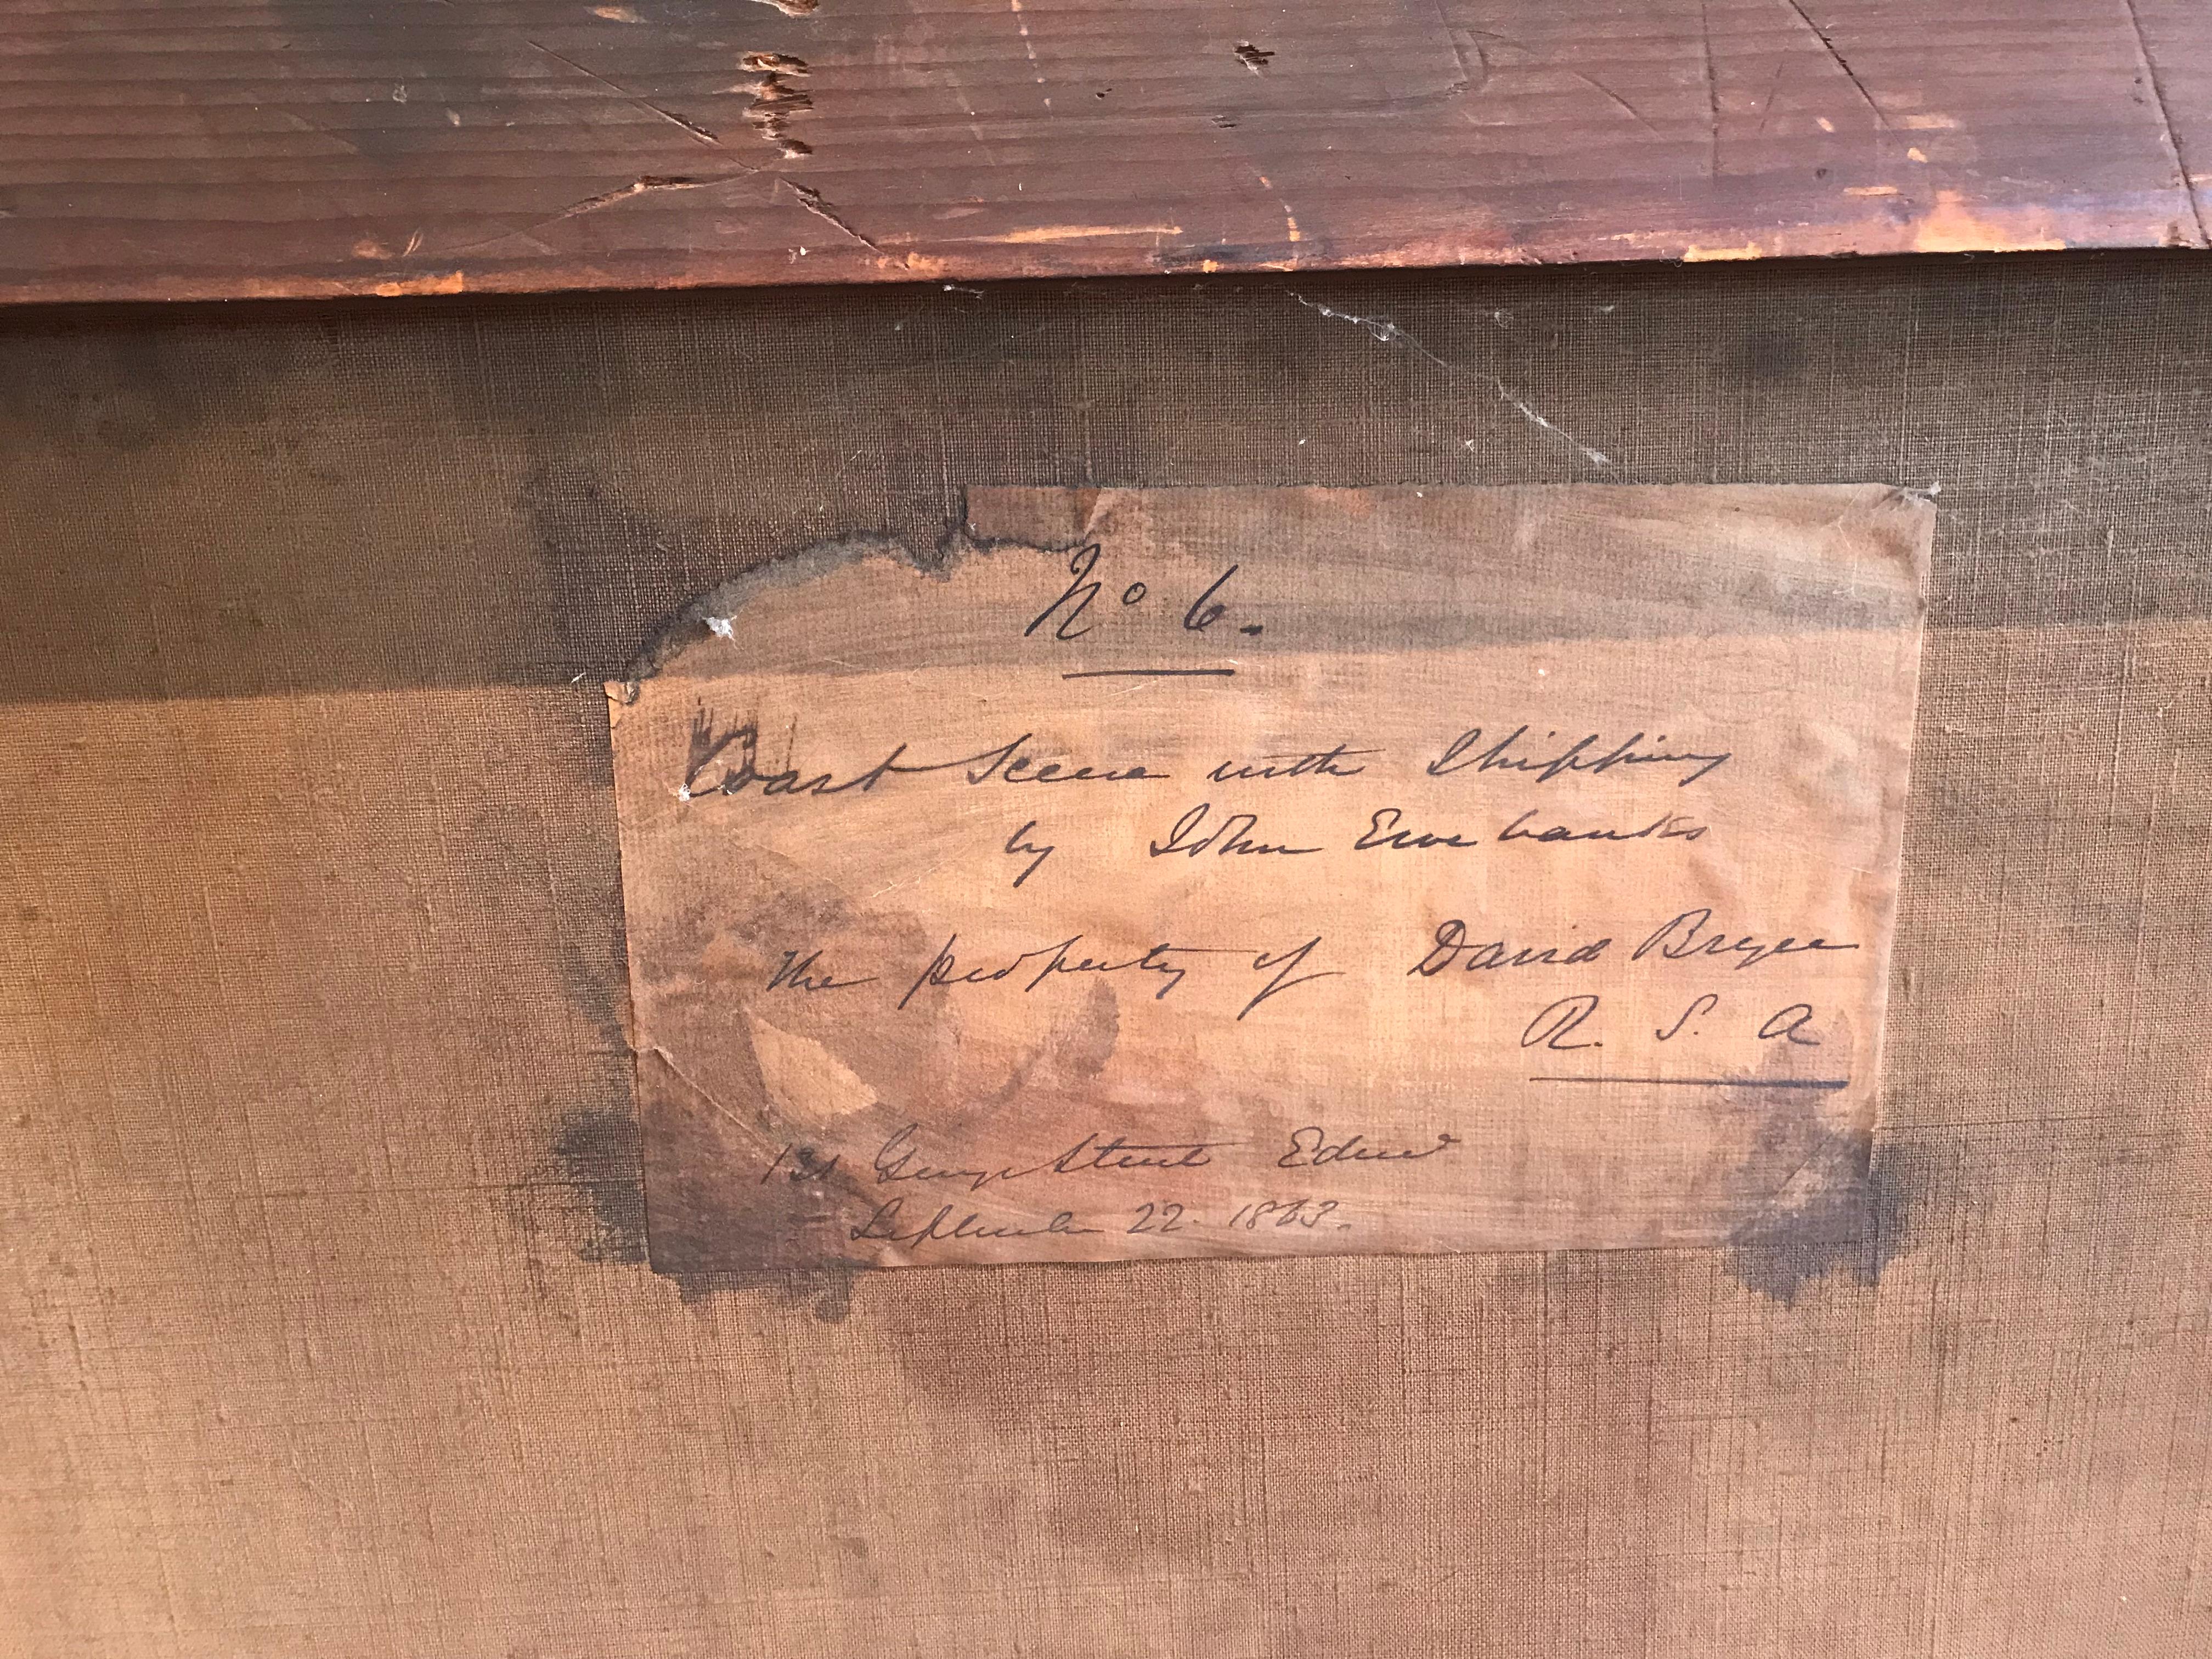 No 6.
Coast Scene with Shipping
by John Ewebanks
The property of David Bryce
R. S. A
131 George Street Edinr
September 22. 1863.